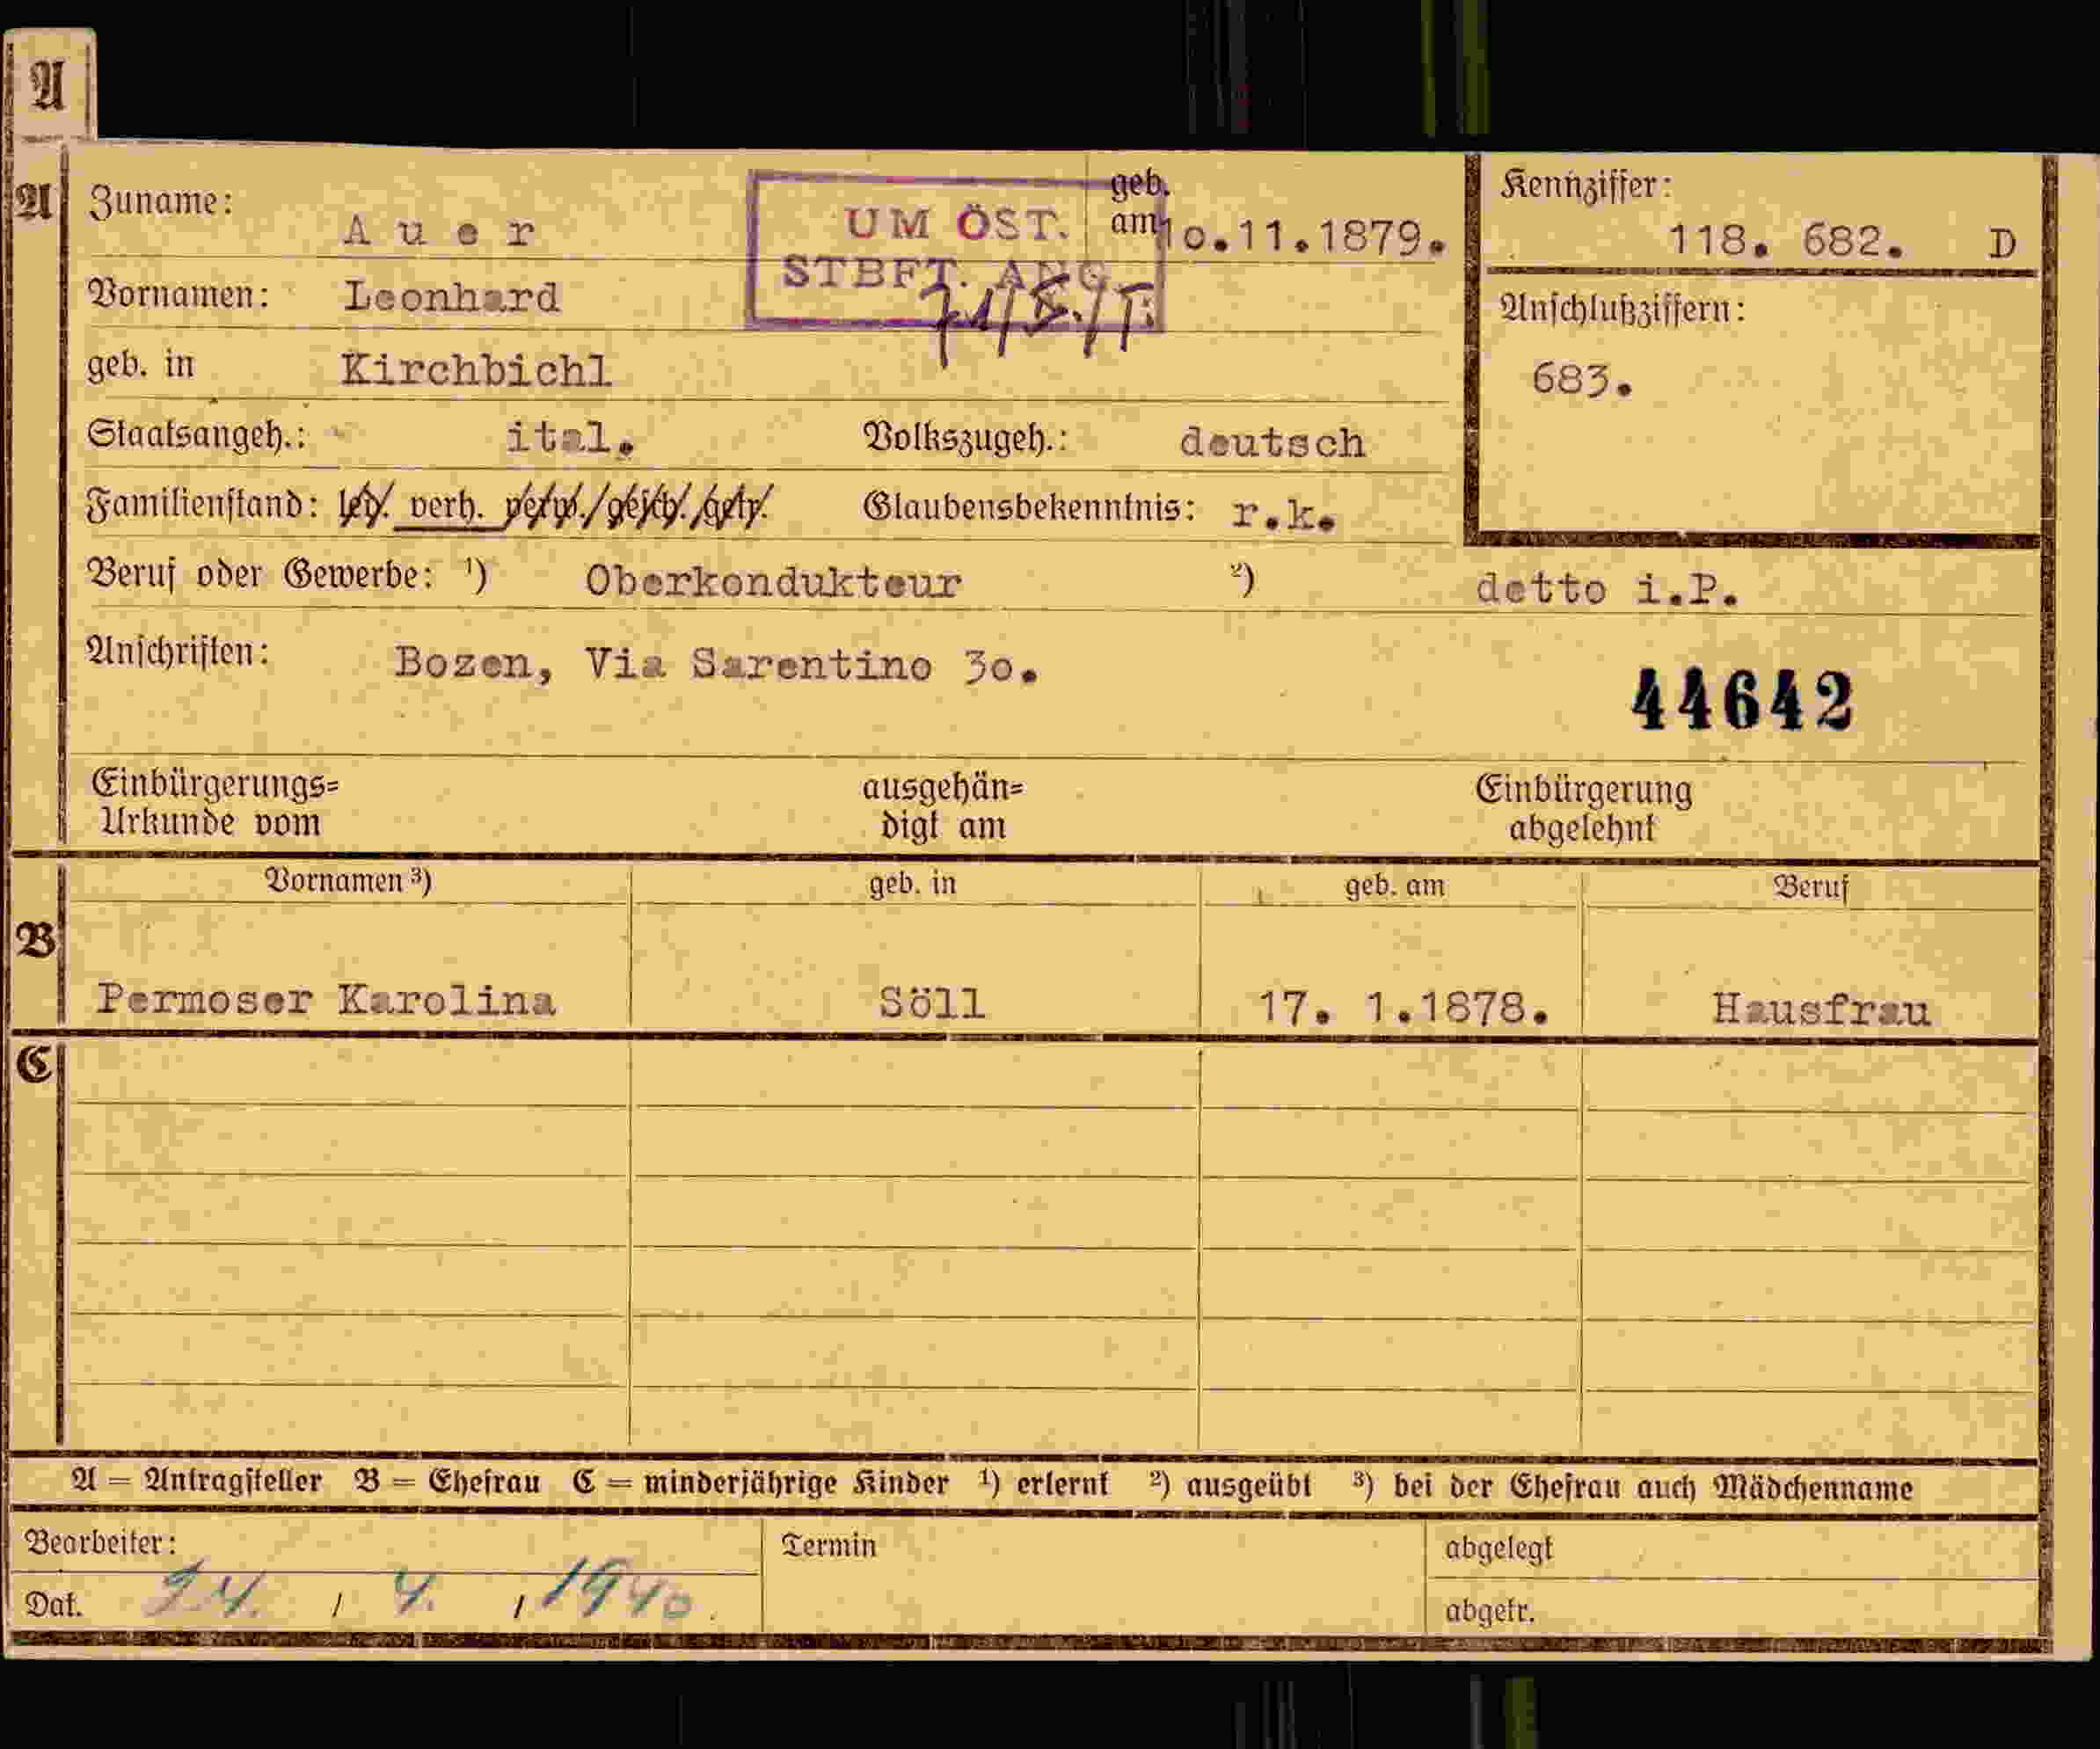 A
A Zuname: Auer geb. am 10.11.1879. Kennziffer: 118. 682. D
UM ÖST.
STBFT. ANG.
Vornamen: Leonhard Anschlußziffern:
geb. in Kirchbichl 683.
Staatsangeh.: ital. Volkszugeh.: deutsch
Familienstand: led. verh. verw./gesch./getr. Glaubensbekenntnis: r.k.
Beruf oder Gewerbe: ¹) Oberkondukteur ²) detto i.P.
Anschriften: Bozen, Via Sarentino 30.
44642
Einbürgerungs= ausgehän= Einbürgerung
Urkunde vom digt am abgelehnt
Vornamen ³) geb. in geb. am Beruf
B
Permoser Karolina Söll 17. 1.1878. Hausfrau
C
A = Antragsteller B = Ehefrau C = minderjährige Kinder ¹) erlernt ²) ausgeübt ³) bei der Ehefrau auch Mädchenname
Bearbeiter: Termin abgelegt
Dat. 24. / 4. / 1940. abgetr.